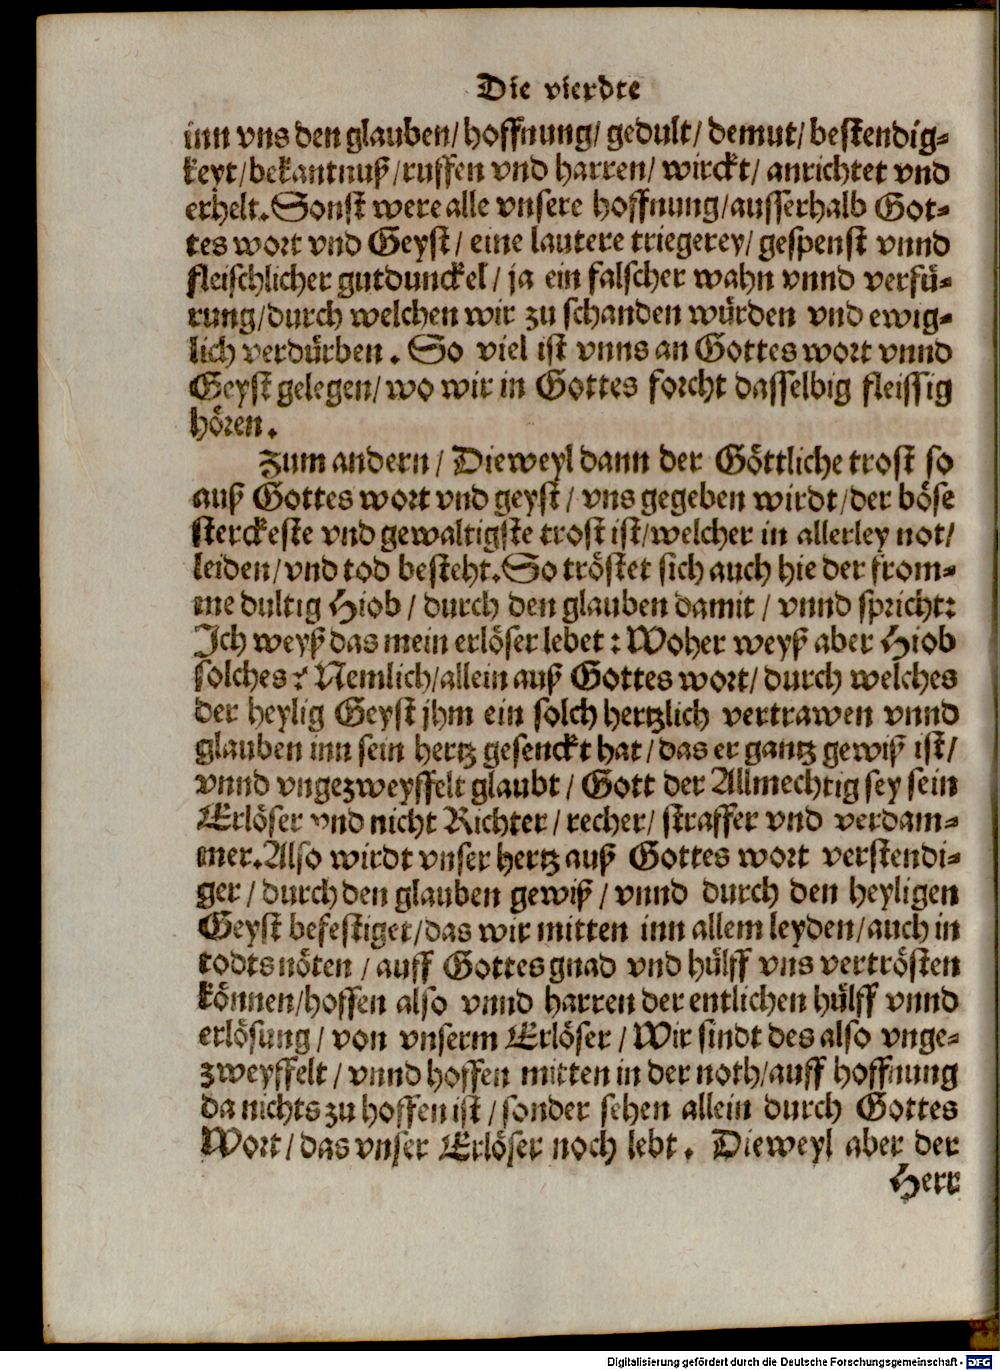 Die vierdte
inn vns den glauben/ hoffnung/ gedult/ demut/ bestendig⸗
keyt/ bekantnuß/ ruffen vnd harren/ wirckt/ anrichtet vnd
erhelt. Sonst were alle vnsere hoffnung/ ausserhalb Got⸗
tes wort vnd Geyst/ eine lautere triegerey/ gespenst vnnd
fleischlicher gutdunckel/ ja ein falscher wahn vnnd verfü⸗
rung/ durch welchen wir zu schanden würden vnd ewig⸗
lich verdürben. So viel ist vnns an Gottes wort vnnd
Geyst gelegen/ wo wir in Gottes forcht dasselbig fleissig
hören.
Zum andern/ Dieweyl dann der Göttliche trost so
auß Gottes wort vnd geyst/ vns gegeben wirdt/ der böse
sterckeste vnd gewaltigste trost ist/ welcher in allerley not/
leiden/ vnd tod besteht. So tröstet sich auch hie der from⸗
me dultig Hiob/ durch den glauben damit/ vnnd spricht:
Ich weyß das mein erlöser lebet: Woher weyß aber Hiob
solches? Nemlich/ allein auß Gottes wort/ durch welches
der heylig Geyst jhm ein solch hertzlich vertrawen vnnd
glauben inn sein hertz gesenckt hat/ das er gantz gewiß ist/
vnnd vngezweyffelt glaubt/ Gott der Allmechtig sey sein
Erlöser vnd nicht Richter/ recher/ straffer vnd verdam⸗
mer. Also wirdt vnser hertz auß Gottes wort verstendi⸗
ger/ durch den glauben gewiß/ vnnd durch den heyligen
Geyst befestiget/ das wir mitten inn allem leyden/ auch in
todts nöten/ auff Gottes gnad vnd hülff vns vertrösten
können/ hoffen also vnnd harren der entlichen hülff vnnd
erlösung/ von vnserm Erlöser/ Wir sindt des also vnge⸗
zweyffelt/ vnnd hoffen mitten in der noth/ auff hoffnung
da nichts zu hoffen ist/ sonder sehen allein durch Gottes
Wort/ das vnser Erlöser noch lebt. Dieweyl aber der
Herr
Digitalisierung gefördert durch die Deutsche Forschungsgemeinschaft - DFG